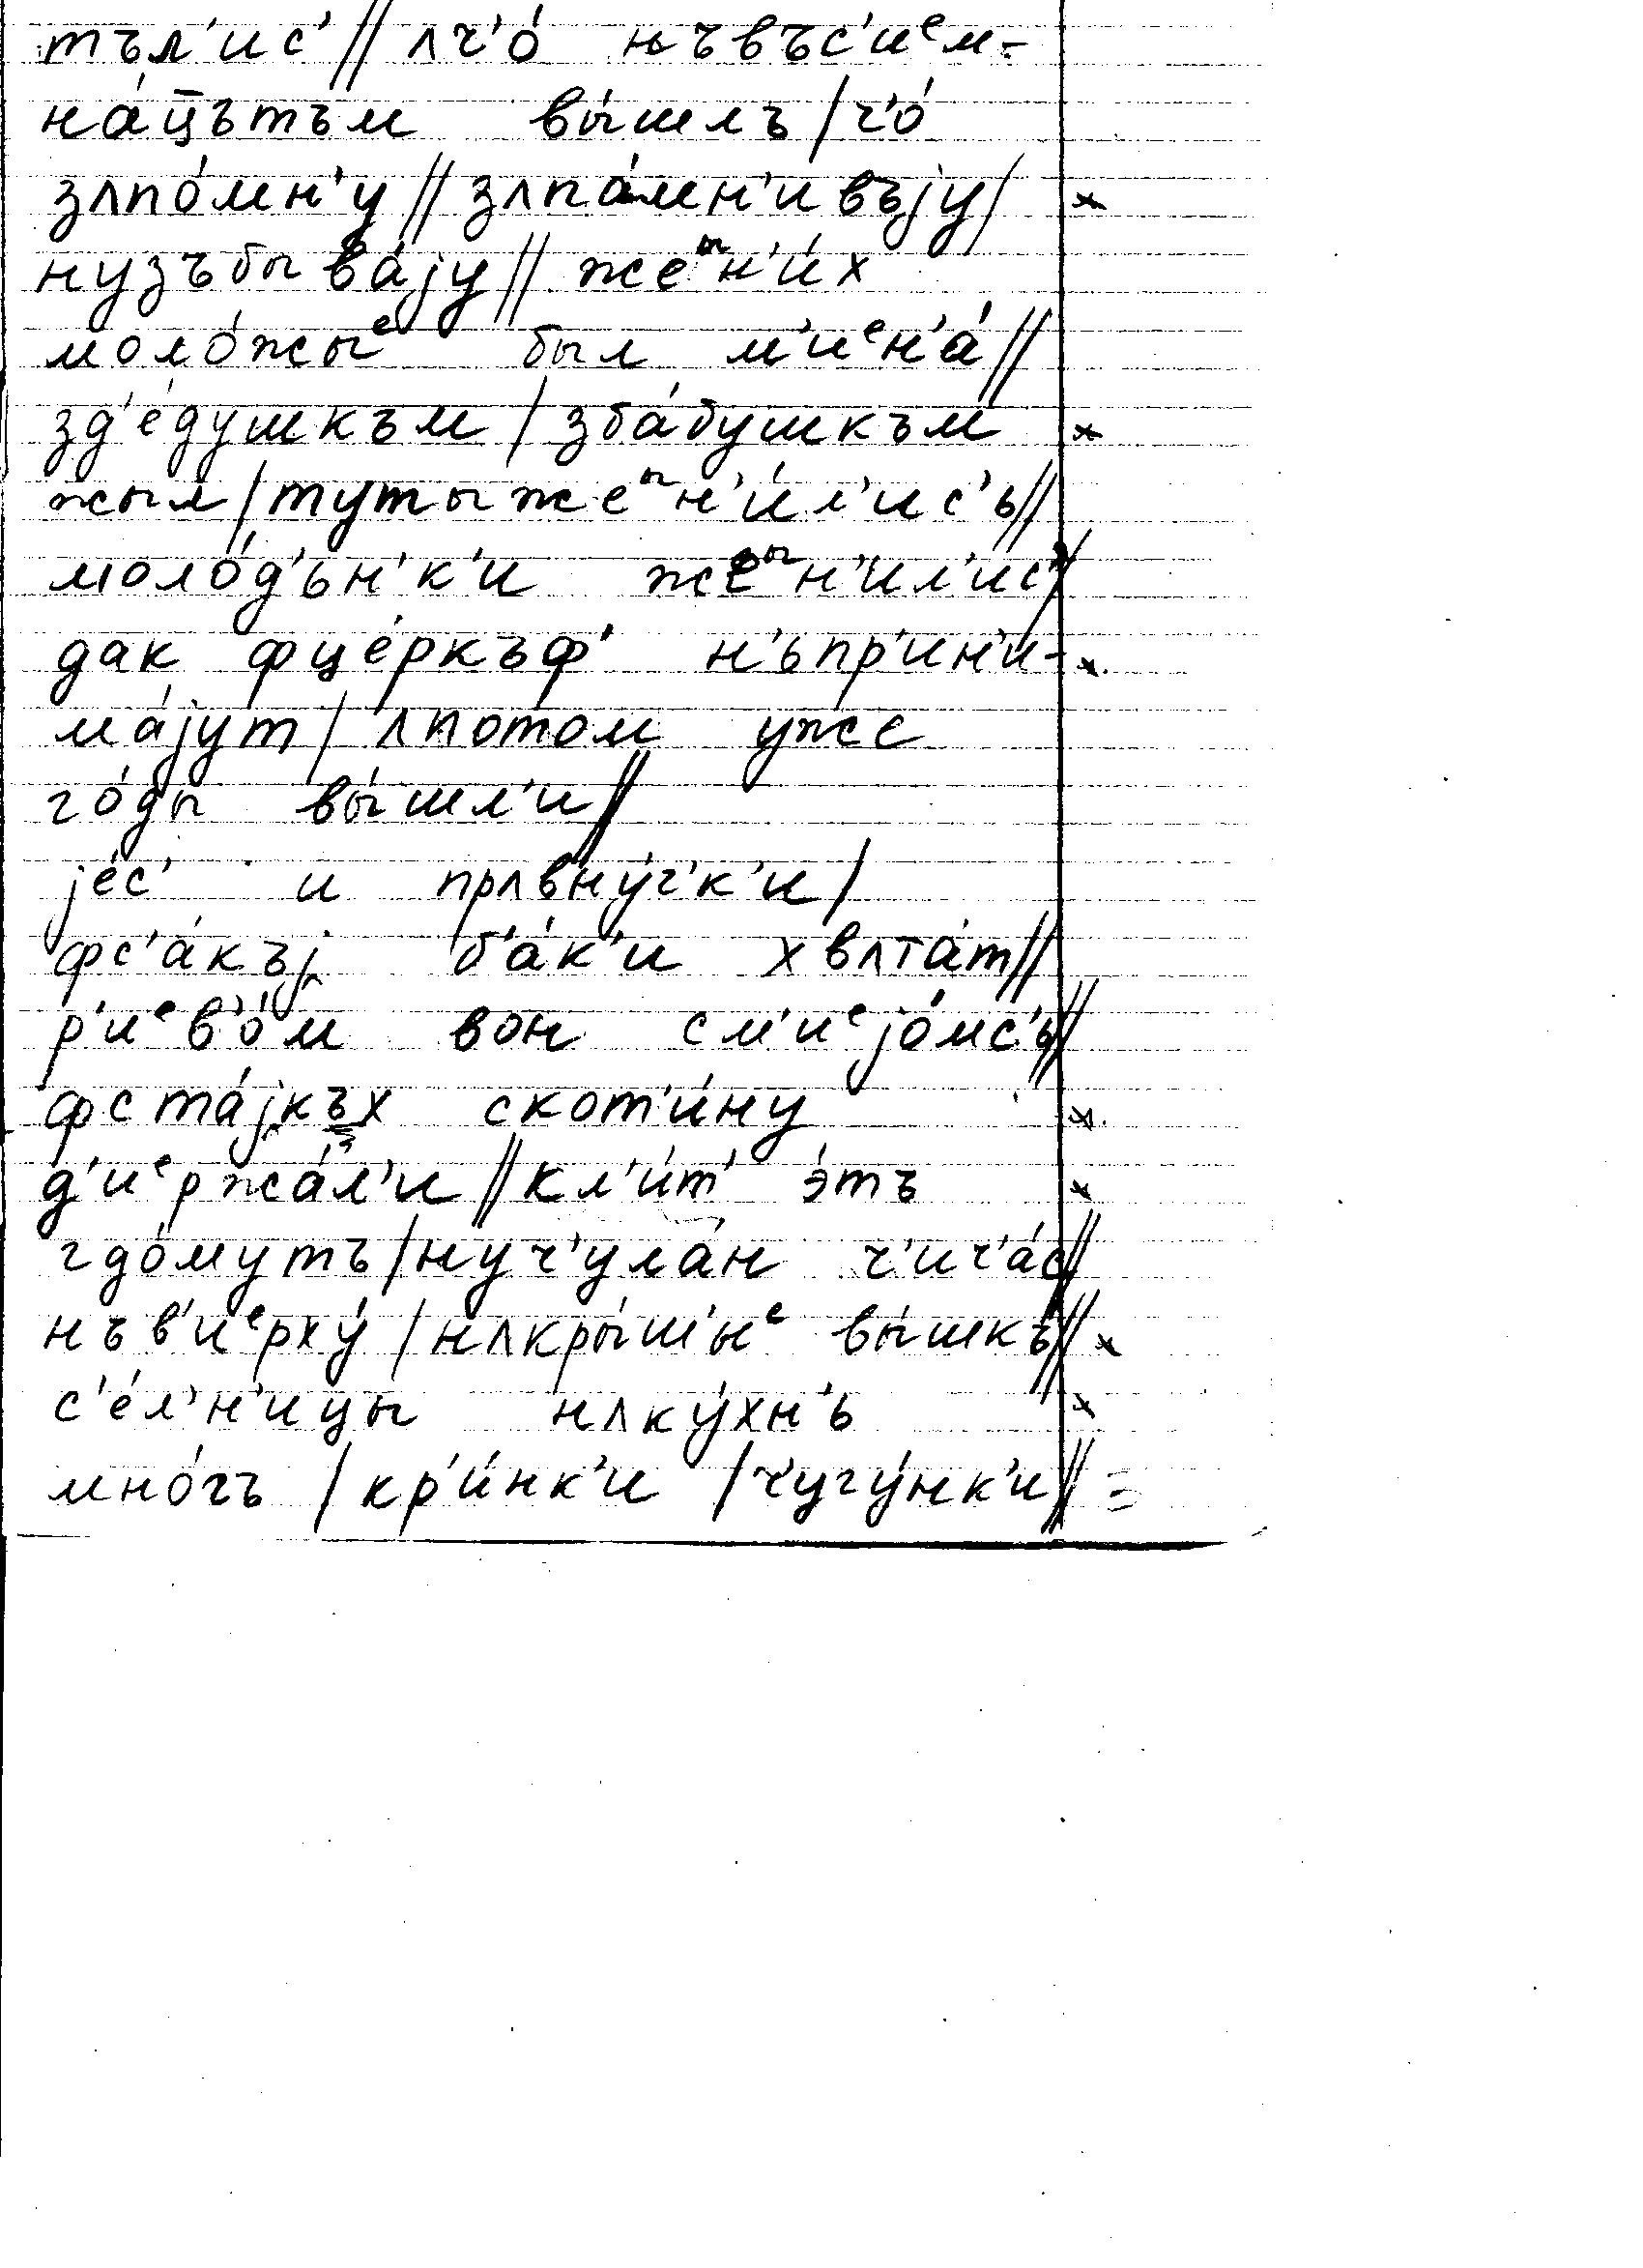 тъл'ис' // ʌч'о́ нъвъс'иᵉм-
на́ц̄ътъм вы́шлъ / ч'о́
зʌпо́мн'у // зʌпа́мн'ивъjу / ×
нузъбыва́jу // жеᵎᵸн'и́х
моло́жыᵉ был м'иᵉн'а́ //
зд'е́душкъм / зба́бушкъм ×
жыл / тутыжеᵸн'и́л'ис'ь //
моло́д'ън'к'и жеᵸн'и́л'ис' /
дак фце́ркъф' н'ьпр'ин'и- ×
ма́jут / ʌпотом уже
го́ды вы́шл'и //
jе́с' и прʌвну́ч'к'и /
фс'а́къj б'а́к'и хвʌта́т //
р'иᵉв'о́м вон см'иᵉjо́мс'ь //
фста́jкъх скот'и́ну ×
д'иᵉржа́л'и // кл'и́т' э́тъ ×
гдо́мутъ / нуч'ула́н ч'ич'а́с //
нъв'иᵉрху́ / нʌкры́шыᵉ вы́шкъ // ×
с'е́л'н'ицы нʌку́хн'ь ×
мно́гъ / кр'и́нк'и / ч'угу́нк'и // =